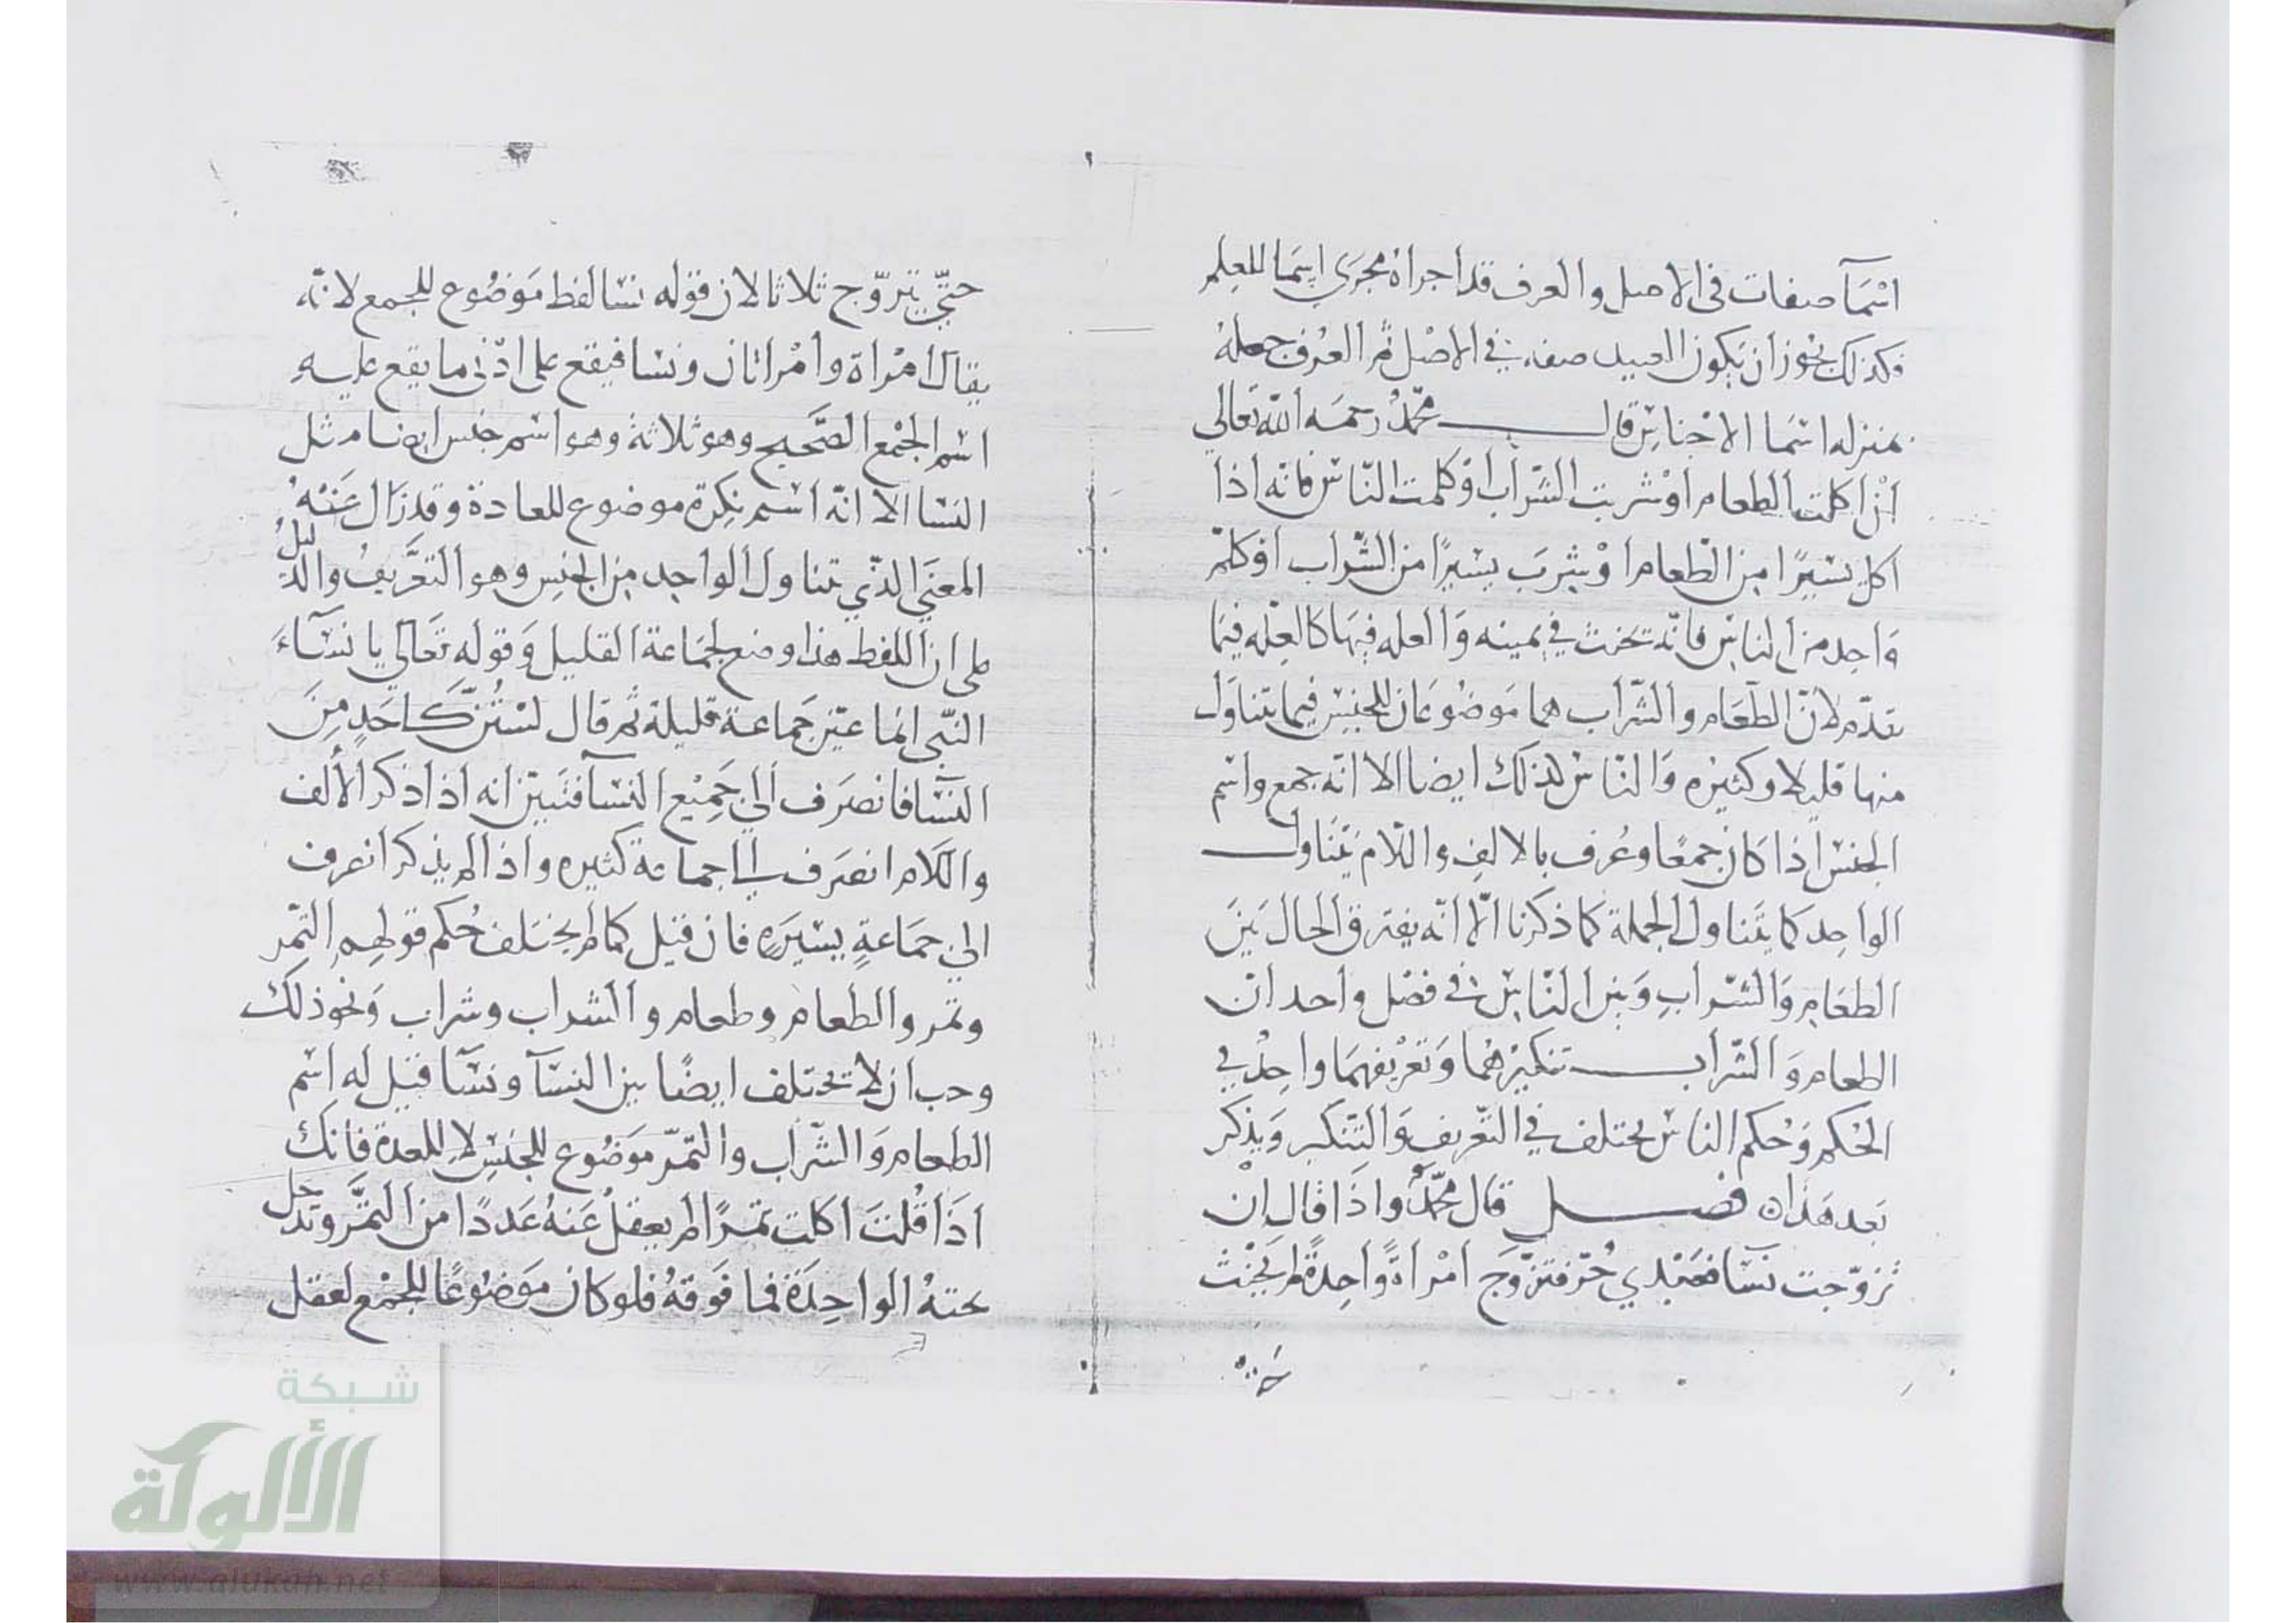 اسْمَآ صفات في الاصل والعرف قد اجراهُ مجرَي اسِمَا للعِلم
فكذلك يجْوز أن يَكون العبيد صفه في الاصْل ثم العُرف جعلهُ
بمنزله اسْما الاجْناسِ قال محمّدٌ رحمَه الله تَعَالي
انْ اكلت الطعام اوْ شربت الشّراب اوْ كلمت النّاسْ فانه اذا
اكل يسْيرًا مِن الطّعام اوْ شِربَ يسْيرًا من الشّراب اوْ كلم
وَاحِد من الناسِ فانّه تحَنث في يمينه وَالعله فِيهَا كالعِلّه فيمَا
تقدّم لانّ الطَعَام والشّراب هما مَوضُوعَان للجنسِ فيما تناوَل
منها قليلا وكثيره وَالنّاسْ كذلك ايضا الا انّه جمع واسْم
الجنسْ اذا كان جمعًا وعُرف بالالفِ واللّام يَتنَاول
الواحِد كما يتَناول الجملة كما ذكرنا الّا انّه يفترق الحال بَيْنَ
الطعَام وَالشّرابِ وَبين النّاسْ في فصْل واحد انّ
الطعام وَالشّراب تنكيرْهُما وَتعْريفهمَا واحِدْ في
الحُكم وَحُكم الناسْ يختلف في التّعْريف وَالتّنكير وَيذكر
بَعد هَذا ه فصل قال محمّدٌ واذَا قال انْ
تزوّجت نسَآ فعَبْدي حُرّ فتزوَّجَ امْراةً وَاحِدةً لم يَحْنث
حَتّي يَتزوّج ثلاثا لان قوله نسَا لفظ مَوضُوع للجمع لانّه
يقال امْراة وامْراتان ونسَا فيقع على ادْنى ما يقع عليهِ
اسْم الجمْع الصَّحيح وهو ثلاثة وهو اسْم جنس ايضا مثل
النسَا الا انّه اسْم نكِرة موضوع للعادة وقد زَال عَنْهُ
المعنَي الذّي تناول الواحِد مِن الجنسِ وهو التَعْريفُ والدليلُ
على ان اللفظ هذا وضع لجَماعة القليل وَقوله تَعَالي يا نسَآءَ
النّبي انما عيّن جَماعة قليلة ثم قال لسْتُنّ كَاحَدٍ مِنَ
النسَآ فانصَرَف اليَ جَميْع النسَآ فتبيّن انه اذا ذكر الألف
واللَام انصَرَف الي جماعة كثيره واذا لم يذكر انصرف
الي جمَاعةٍ يسْيرَه فان قيل كما لم يختلف حُكم قولهم التّمْر
وتمر والطعام وطعام والشراب وشراب وَنحو ذلك
وجب ان لا تختلف ايضًا بين النسَآ ونسَآ قيل له اسْم
الطعام وَالشّراب والتمّر مَوضُوع للجنسِ لا للعدة فانك
اذَا قُلتَ اكلت تمرًا لم يعقلْ عَنهُ عَددًا من التمَّر وتدخل
تحتهُ الواحِدَة فما فَوقهُ فلو كان مَوضوعًا للجمْع لعقل
شبكة
الألوكة
www.alukah.net